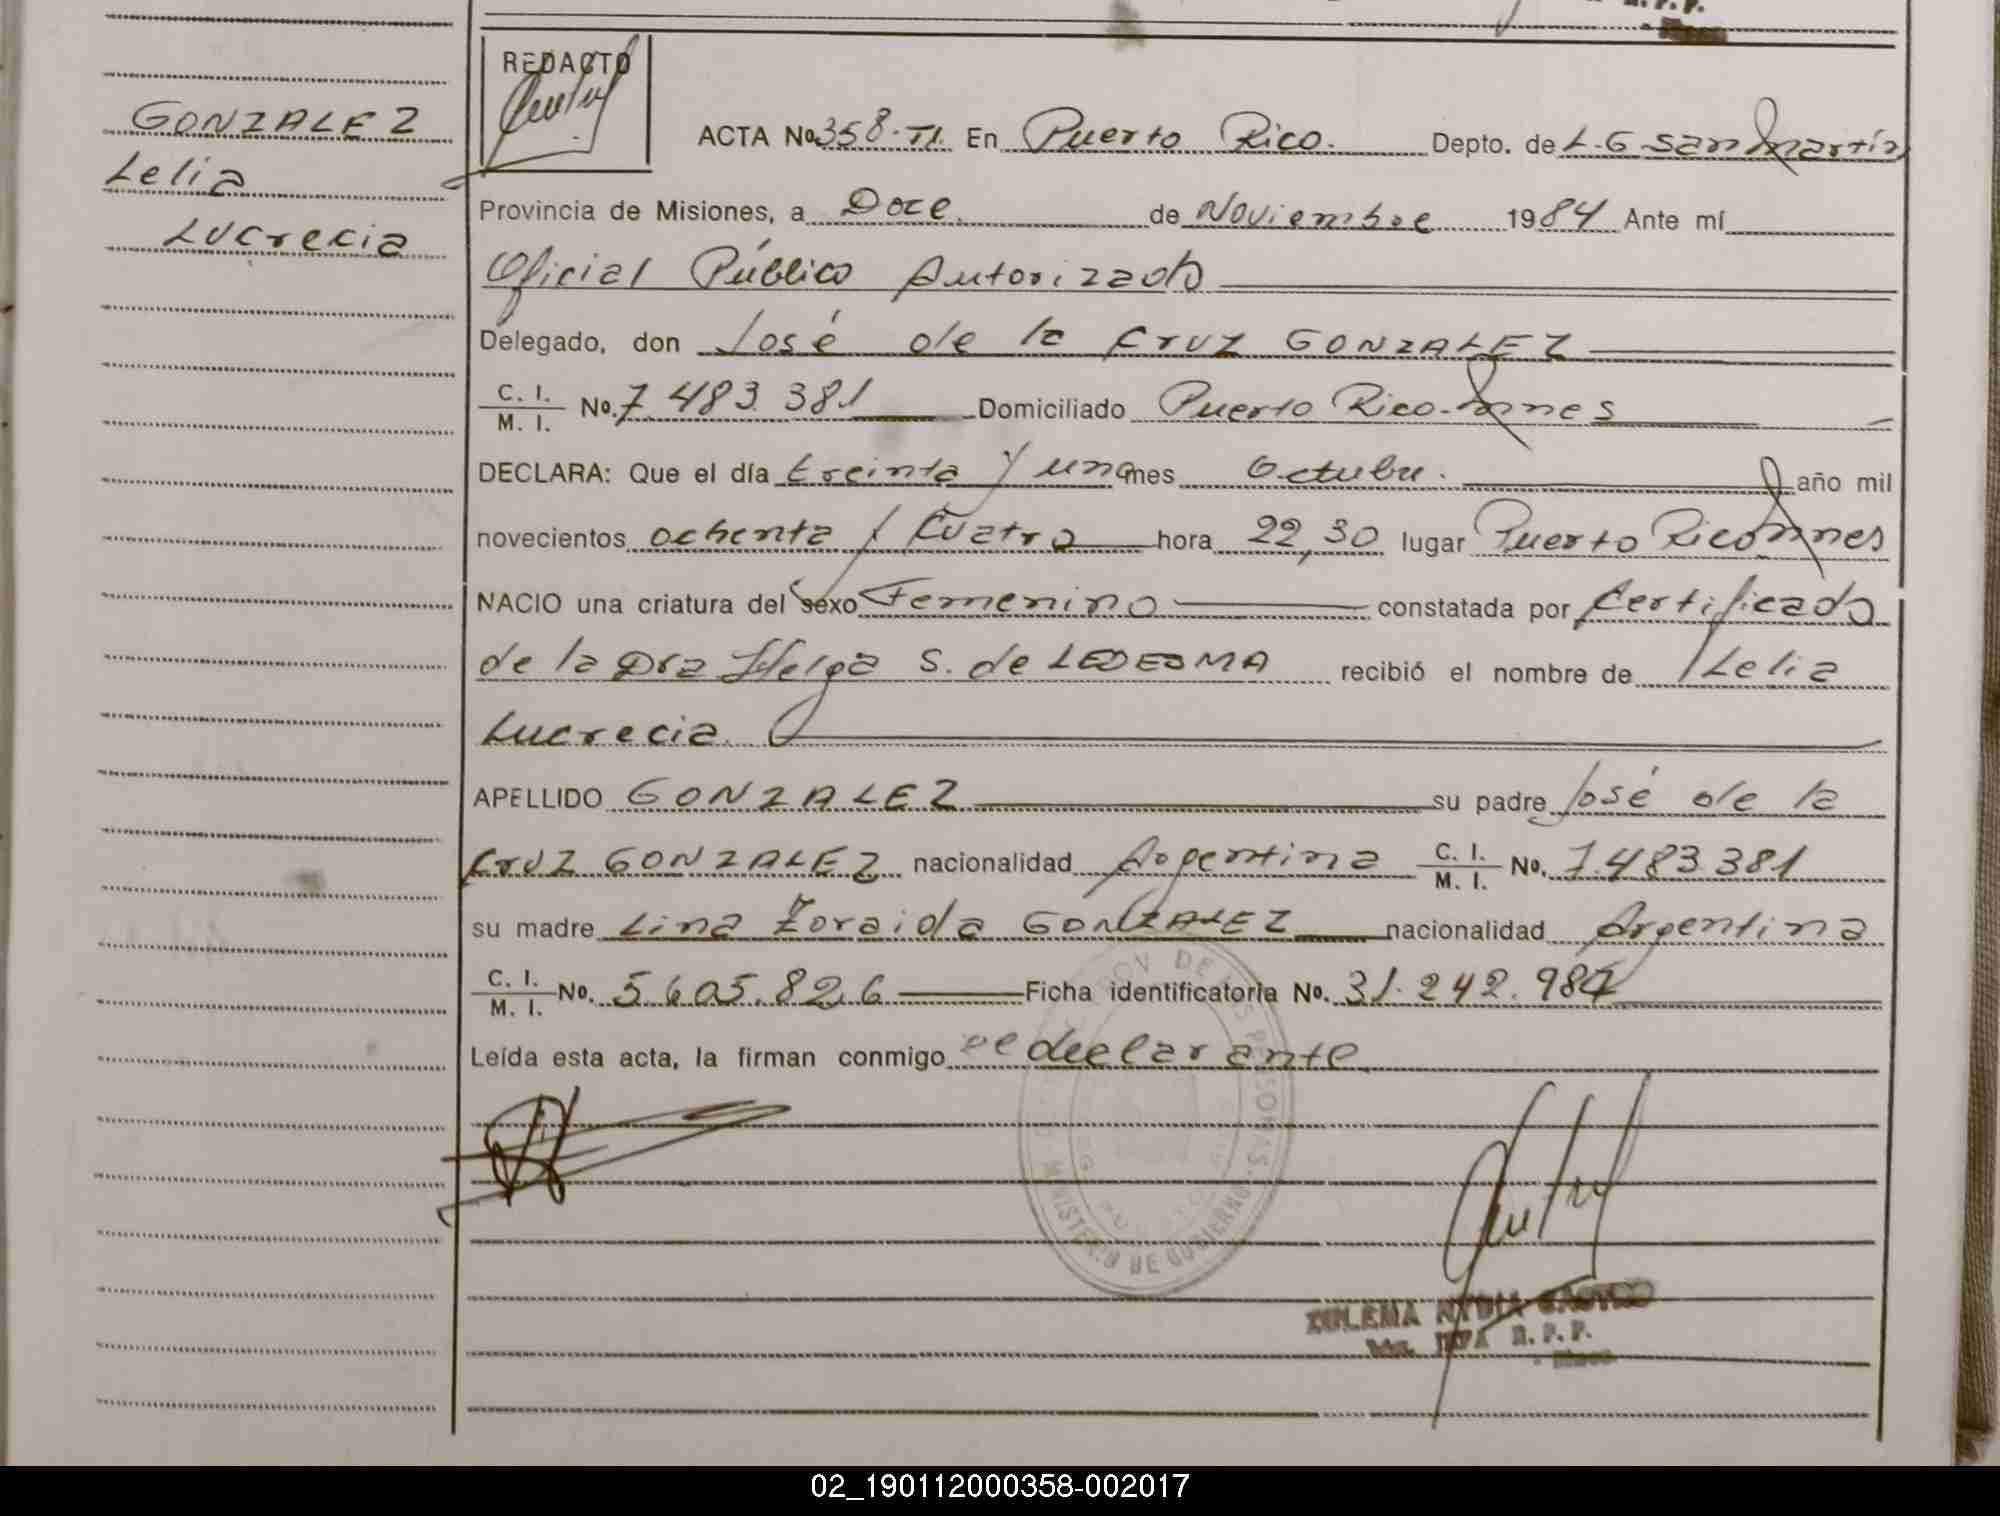 GONZALEZ
Lelia
Lucrecia
REDACTO
ACTA No. 358. TI. En Puerto Rico. Depto. de L. G San Martín
Provincia de Misiones, a Doce. de Noviembre 1984 Ante mí
Oficial Público Autorizado
Delegado, don José de la Cruz GONZALEZ
C. I.
M. I. No. 7.483.381 Domiciliado Puerto Rico-Mnes
DECLARA: Que el día treinta y uno mes Octubre. año mil
novecientos ochenta y Cuatro hora 22,30 lugar Puerto Rico Mnes
NACIO una criatura del sexo Femenino constatada por Certificado
de la Dra Helga S. de LEDESMA recibió el nombre de Lelia
Lucrecia.
APELLIDO GONZALEZ su padre José de la
Cruz GONZALEZ nacionalidad Argentina C. I.
M. I. No. 7.483.381
su madre Lina Zoraida GONZALEZ nacionalidad Argentina
C. I.
M. I. No. 5.605.826 Ficha identificatoria No. 31.242.984
Leída esta acta, la firman conmigo el declarante
MINISTERIO DE GOBIERNO
ZULEMA NYDIA CASTRO
R. P. P.
02_190112000358-002017